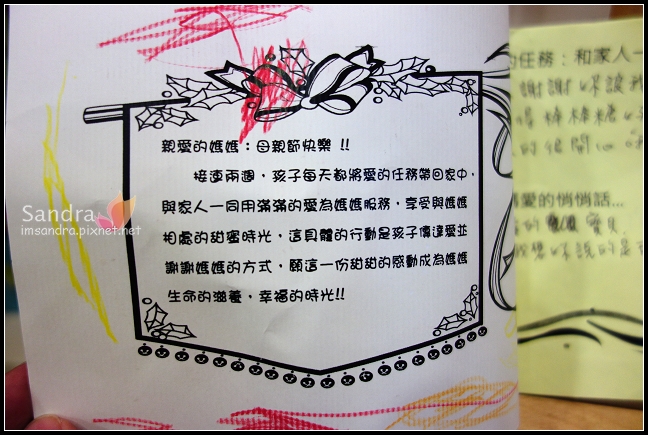 親愛的媽媽：母親節快樂 !!
接連兩週，孩子每天都將愛的任務帶回家中，
與家人一同用滿滿的愛為媽媽服務，享受與媽媽
相處的甜蜜時光，這具體的行動是孩子傳達愛並
謝謝媽媽的方式，願這一份甜甜的感動成為媽媽
生命的滋養，幸福的時光!!
Sandra
imsandra.pixnet.net
的任務：和家人一
謝謝你讓我
棒棒糖
的很開心
愛的悄悄話...
的寶貝
我想你說的是